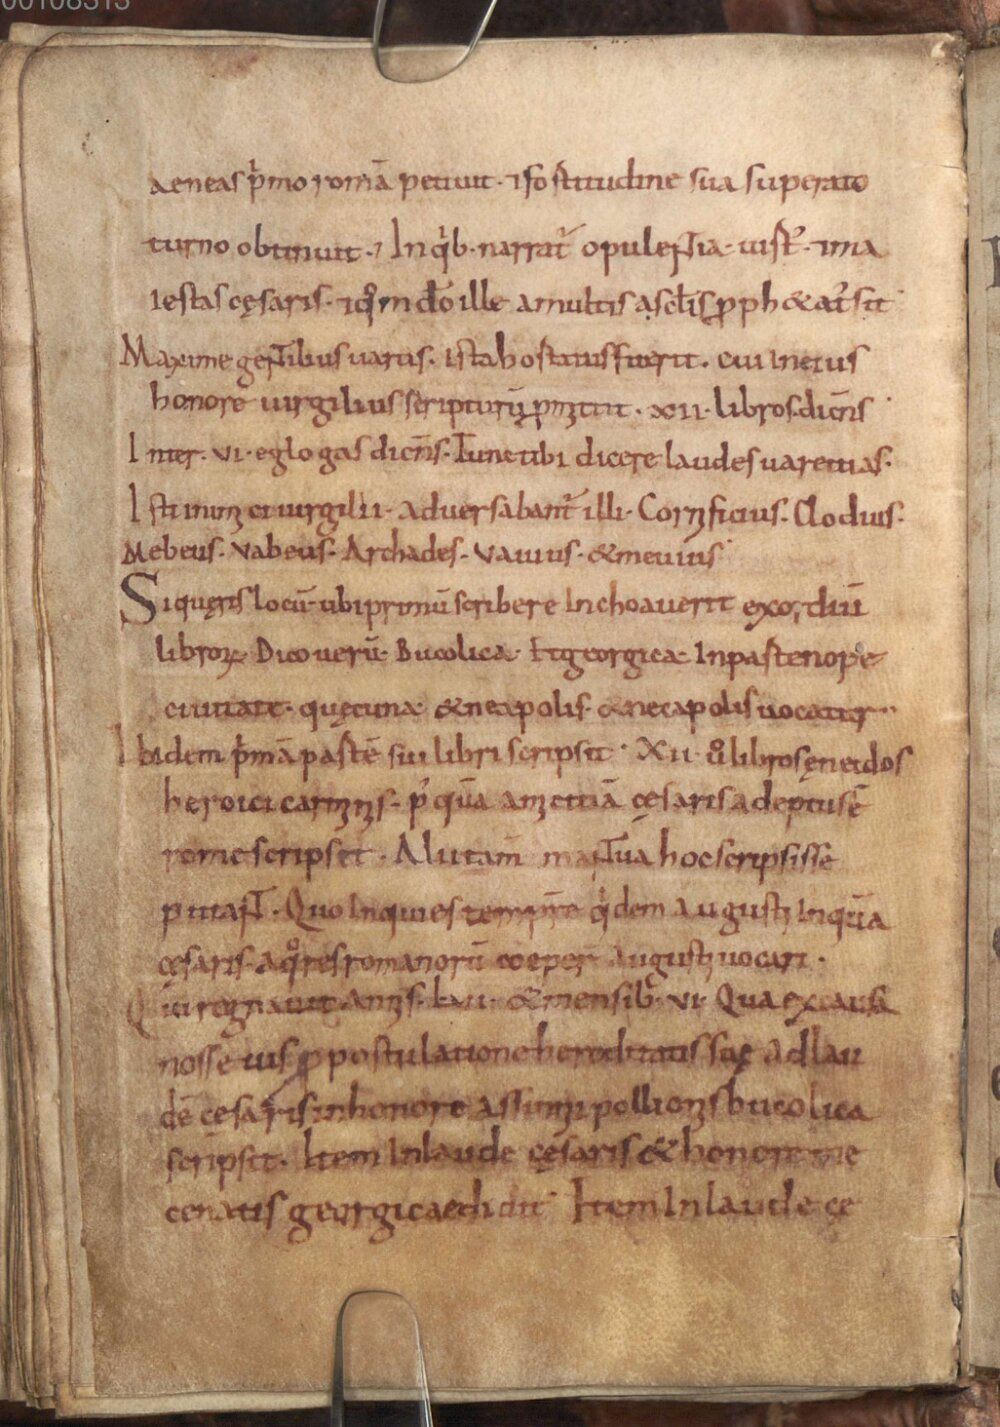 00108313
aeneas p̍mo romā petiuit · ⁊ fortitudine sua superato
turno obtinuit ·⁊ In qⁱb· narrat᷑ opulentia· uict᷑· ⁊ ma
iestas cęsaris · ⁊ qͦmdo ille a multis asctis pph&at᷑ sit
Maxime gentibus uariis · ista hostatus fuerit · cui in eius
honore uirgilius scripturū pmittit · xii · libros· dicn̄s
Inter · vi · eglogas dicn̄s · Tunc tibi dicere laudes uare tuas·
Isti inimici uirgilii · aduersabant᷑ illi · Cornificius · Clodius·
Mebeus · Vabeus · Archades · Vauius · & meuius
Si queris locū· ubi primū scribere Inchoauerit exordiū
libroꝝ Dico uerū· Bucolica· Et georgica· In pastenope
ciuitate · quę cuna& & neapolis · & necapolis uocatur··
Ibidem p̍mā pastē sui libri scripsit · Xii · uͦ libros ęneidos
heroici carminis · p᷑ quā amicitiā cęsaris adeptus ē
rome scripsit · Aliu tam̄ mantua hoc scripsisse
putant · Quo Inquies tempr̄e qⁱdem Augusti Inquā
cęsaris · a qͦ res romanorū coeper̄ augusti uocari ·
Qui regnauit annis · lvi · & mensib᷒ · vi · Qua ex causa
nosse uis p postulatione hereditatis sue ad lau
dē cesaris in honore assinii pollionis bucolica
scripsit · Item In laude cęsaris & honore me
cenatis georgica edidit · Item In laude cę